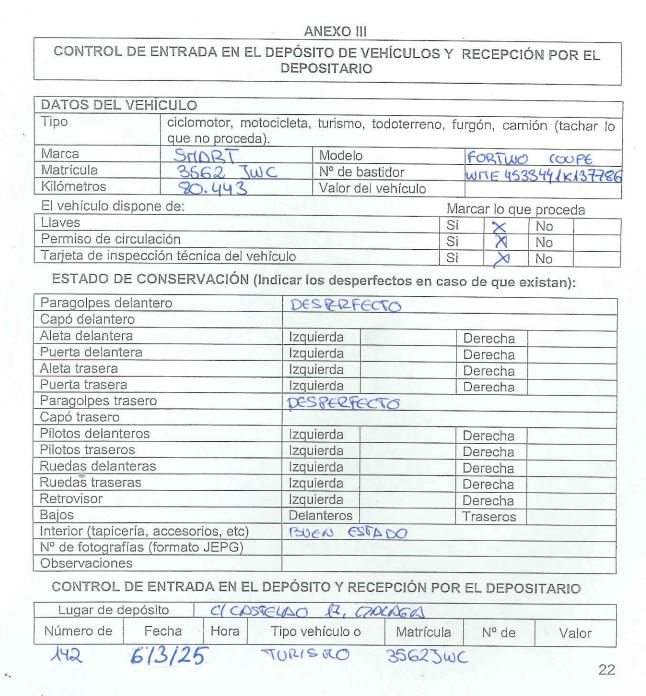 ANEXO III
CONTROL DE ENTRADA EN EL DEPÓSITO DE VEHÍCULOS Y RECEPCIÓN POR EL
DEPOSITARIO
DATOS DEL VEHÍCULO
Tipo ciclomotor, motocicleta, turismo, todoterreno, furgón, camión (tachar lo
que no proceda).
Marca SMART Modelo FORTWO COUPE
Matrícula 3562 JWC Nº de bastidor WME4533441K137786
Kilómetros 80.443 Valor del vehículo
El vehículo dispone de: Marcar lo que proceda
Llaves Si X No
Permiso de circulación Si X No
Tarjeta de inspección técnica del vehículo Si X No
ESTADO DE CONSERVACIÓN (Indicar los desperfectos en caso de que existan):
Paragolpes delantero DESPERFECTO
Capó delantero
Aleta delantera Izquierda Derecha
Puerta delantera Izquierda Derecha
Aleta trasera Izquierda Derecha
Puerta trasera Izquierda Derecha
Paragolpes trasero DESPERFECTO
Capó trasero
Pilotos delanteros Izquierda Derecha
Pilotos traseros Izquierda Derecha
Ruedas delanteras Izquierda Derecha
Ruedas traseras Izquierda Derecha
Retrovisor Izquierda Derecha
Bajos Delanteros Traseros
Interior (tapicería, accesorios, etc) BUEN ESTADO
Nº de fotografías (formato JEPG)
Observaciones
CONTROL DE ENTRADA EN EL DEPÓSITO Y RECEPCIÓN POR EL DEPOSITARIO
Lugar de depósito C/ CASTELAO
Número de Fecha Hora Tipo vehículo o Matrícula Nº de Valor
142 6/3/25 TURISMO 3562JWC
22